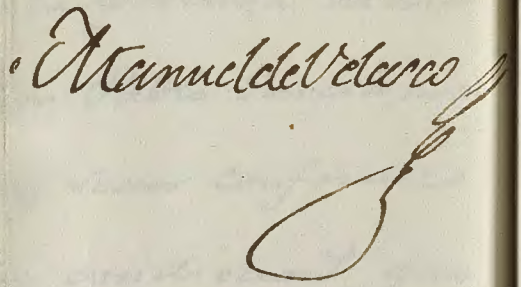 Manuel de Velasco